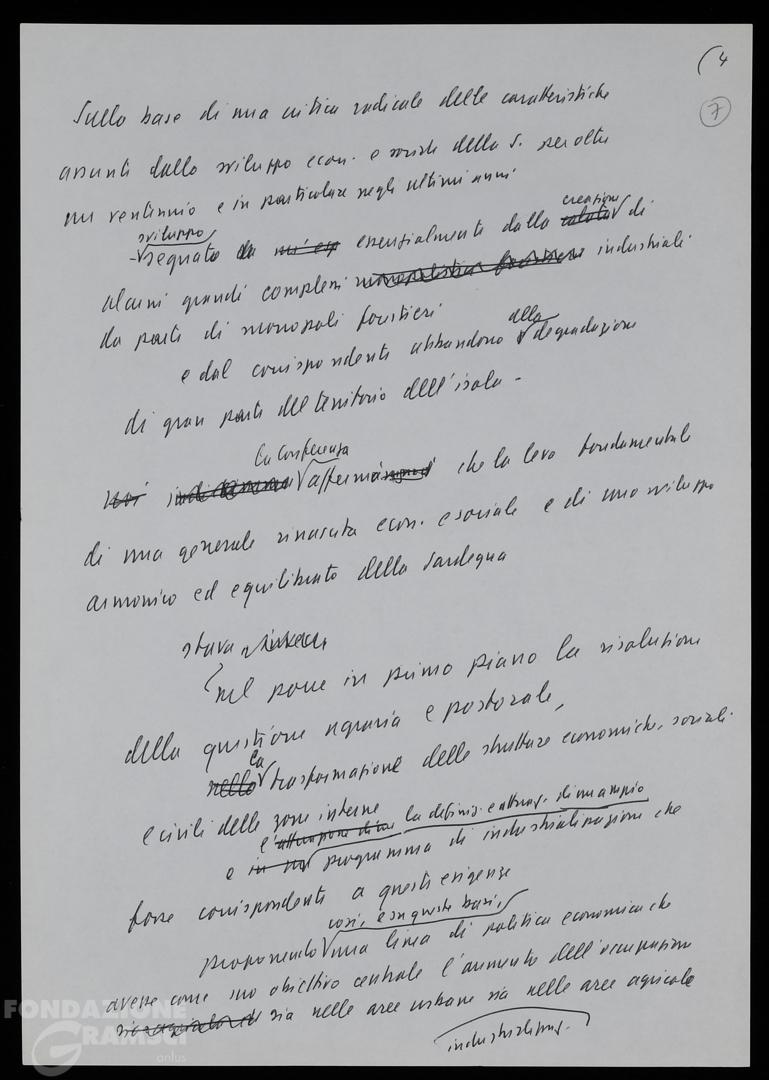 (4
7
Sulla base di una critica radicale delle caratteristiche
assunte dallo sviluppo econ. e sociale della S. per oltre
un ventennio e in particolare negli ultimi anni
sviluppo creazione
- segnato da essenzialmente dalla di
alcuni grandi complessi industriali
da parte di monopoli forestieri
alla
e dal corrispondente abbandono degradazione
di gran parte del territorio dell'isola -
La Conferenza
Noi affermò che la leva fondamentale
di una generale rinascita econ. e sociale e di uno sviluppo
armonico ed equilibrato della Sardegna
stava
nel porre in primo piano la risoluzione
della questione agraria e pastorale,
la
nella trasformazione delle strutture economiche, sociali
e civili delle zone interne
e l'attuazione di un la definiz. e attuaz. di un ampio
e in un programma di industrializzazione che
fosse corrispondente a queste esigenze
così, e su queste basi,
proponendo una linea di politica economica che
avesse come suo obiettivo centrale l'aumento dell'occupazione
sia nelle aree urbane sia nelle aree agricole
industrializzaz.
FONDAZIONE
GRAMSCI
onlus